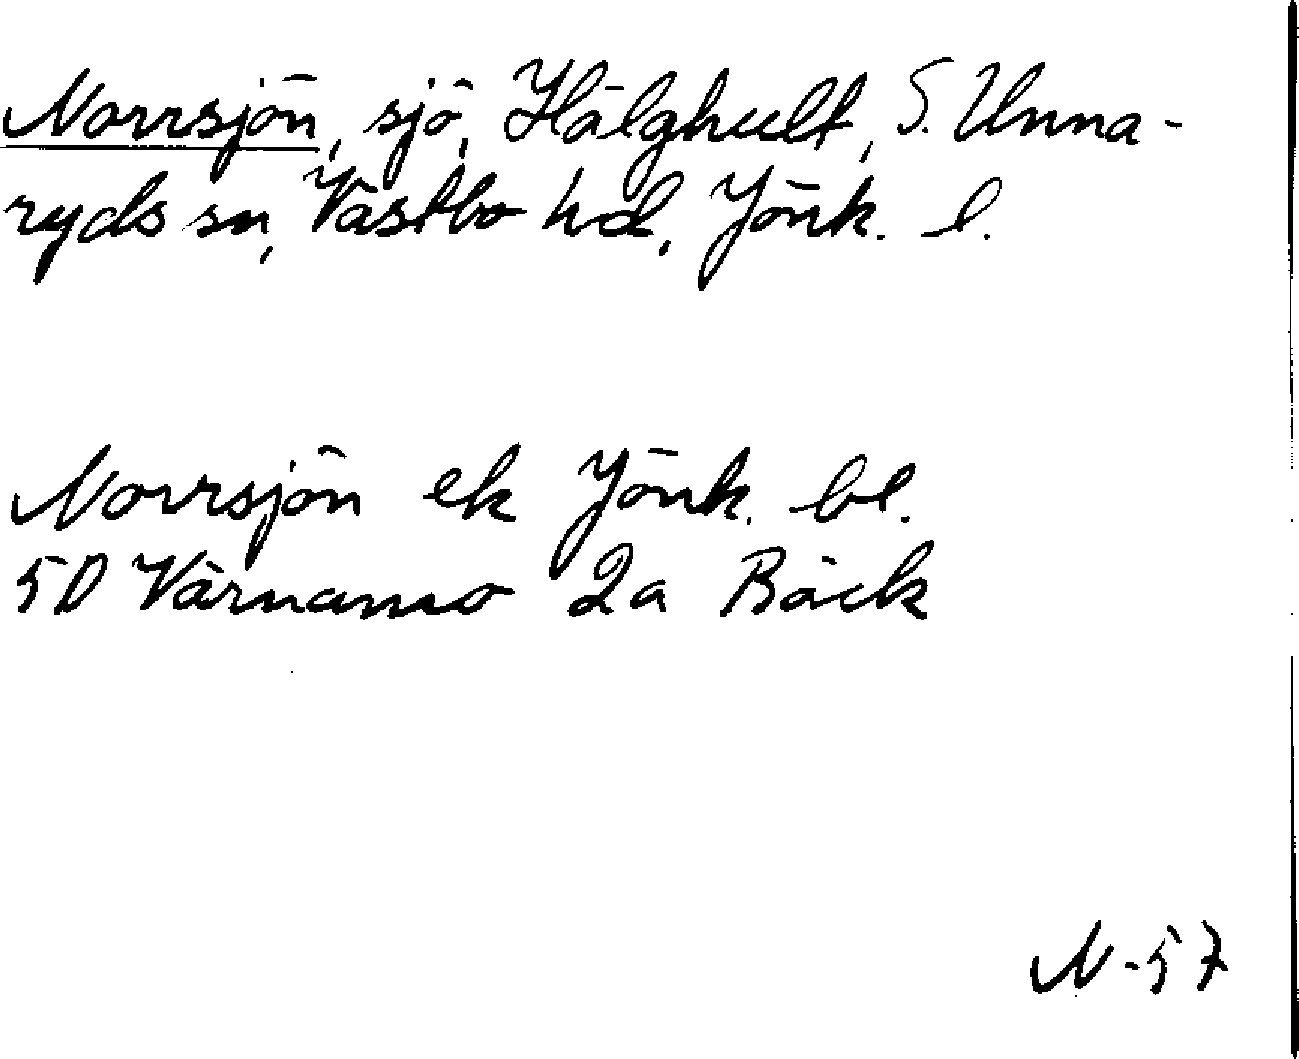 Norrsjön, sjö, Hälghult, S. Unna-
ryds sn, Västbo hd, Jönk. l.
Norrsjön ek Jönk. bl.
5D Värnamo 2a Bäck
N-57